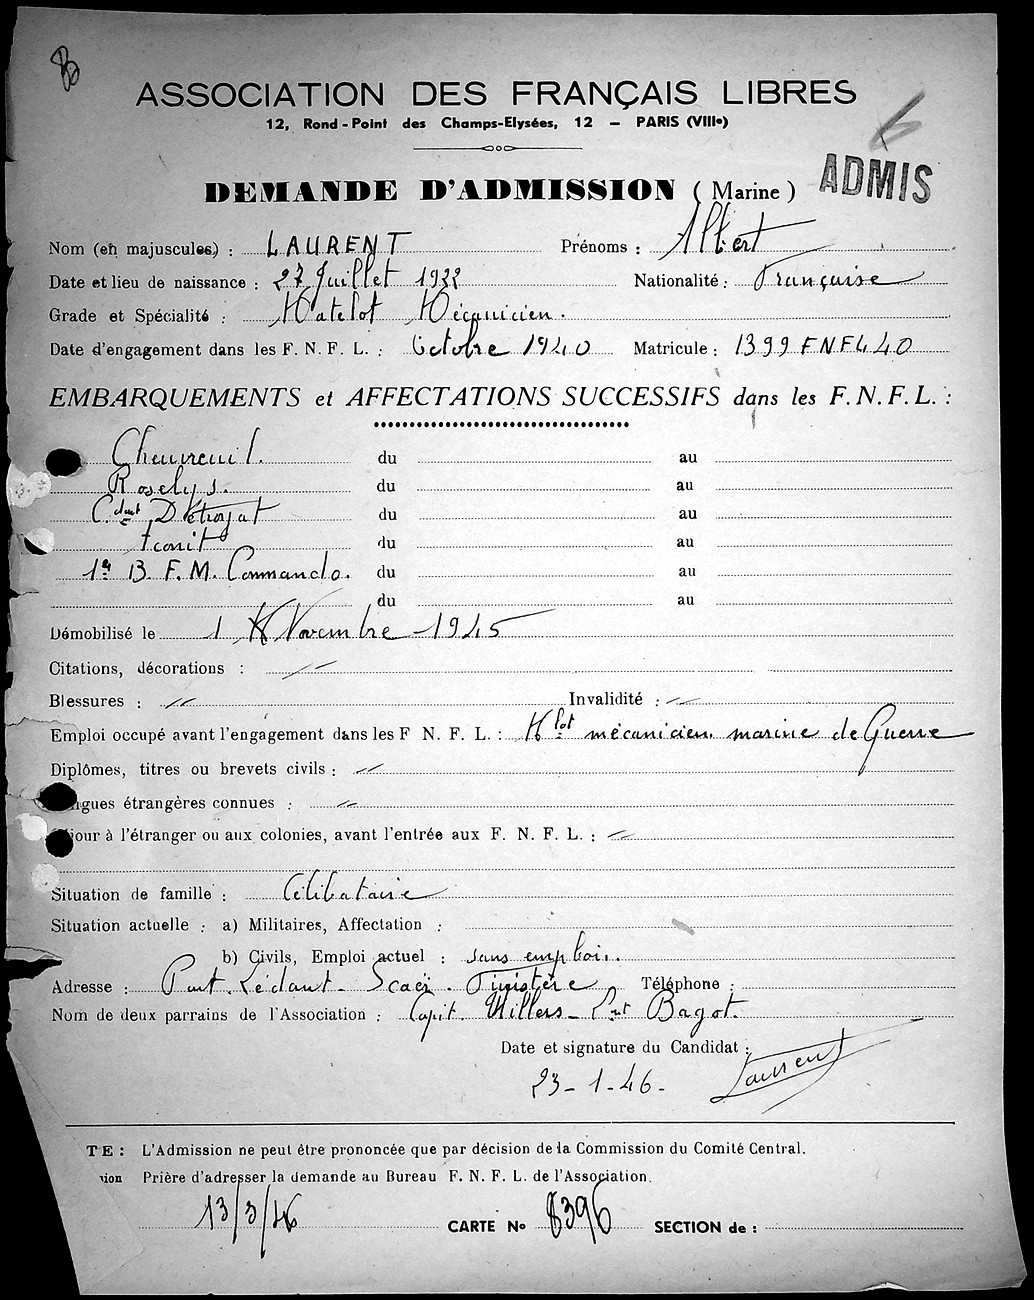 ASSOCIATION DES FRANÇAIS LIBRES
12, Rond-Point des Champs-Elysées, 12 — PARIS (VIIIe)
6
ADMIS
DEMANDE D'ADMISSION ( Marine )
Nom (en majuscules) : LAURENT Prénoms : Albert
Date et lieu de naissance : 27 Juillet 1922 Nationalité : Française
Grade et Spécialité : Matelot Mécanicien.
Date d'engagement dans les F. N. F. L. : Octobre 1940 Matricule : 1399 FNFL 40
EMBARQUEMENTS et AFFECTATIONS SUCCESSIFS dans les F. N. F. L. :
Cheuvreuil. du au
Roselys. du au
C.dant Détroyat du au
Aconit du au
1er B. F. M. Commando. du au
du au
Démobilisé le 1 Novembre 1945
Citations, décorations : //
Blessures : // Invalidité : //
Emploi occupé avant l'engagement dans les F N. F. L. : Mlot mécanicien marine de Guerre
Diplômes, titres ou brevets civils : //
ngues étrangères connues : //
jour à l'étranger ou aux colonies, avant l'entrée aux F. N. F. L. : //
Situation de famille : Célibataire
Situation actuelle : a) Militaires, Affectation :
b) Civils, Emploi actuel : sans emploi.
Adresse : Pont Lédant - Scaër. Finistère Téléphone :
Nom de deux parrains de l'Association : Capit. Willers - Lnt Bagot.
Date et signature du Candidat :
23-1-46- Laurent
TE : L'Admission ne peut être prononcée que par décision de la Commission du Comité Central.
ion Prière d'adresser la demande au Bureau F. N. F. L. de l'Association.
13/3/46 CARTE No 8396 SECTION de :